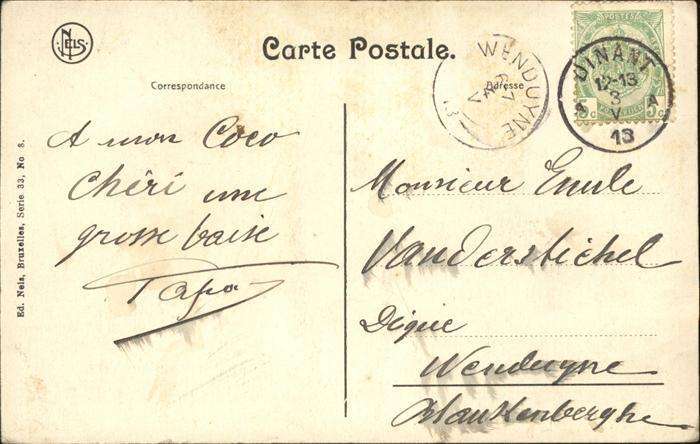 NELS
Carte Postale.
Correspondance
Adresse
WENDUYNE
DINANT
12-13
3
V
13
A
POSTES
5c
A mon Coco
Chéri une
grosse baise
Papa
Monsieur Emile
Vanderstichel
Digue
Wenduyne
Blankenberghe
Ed. Nels, Bruxelles, Serie 33, No 8.